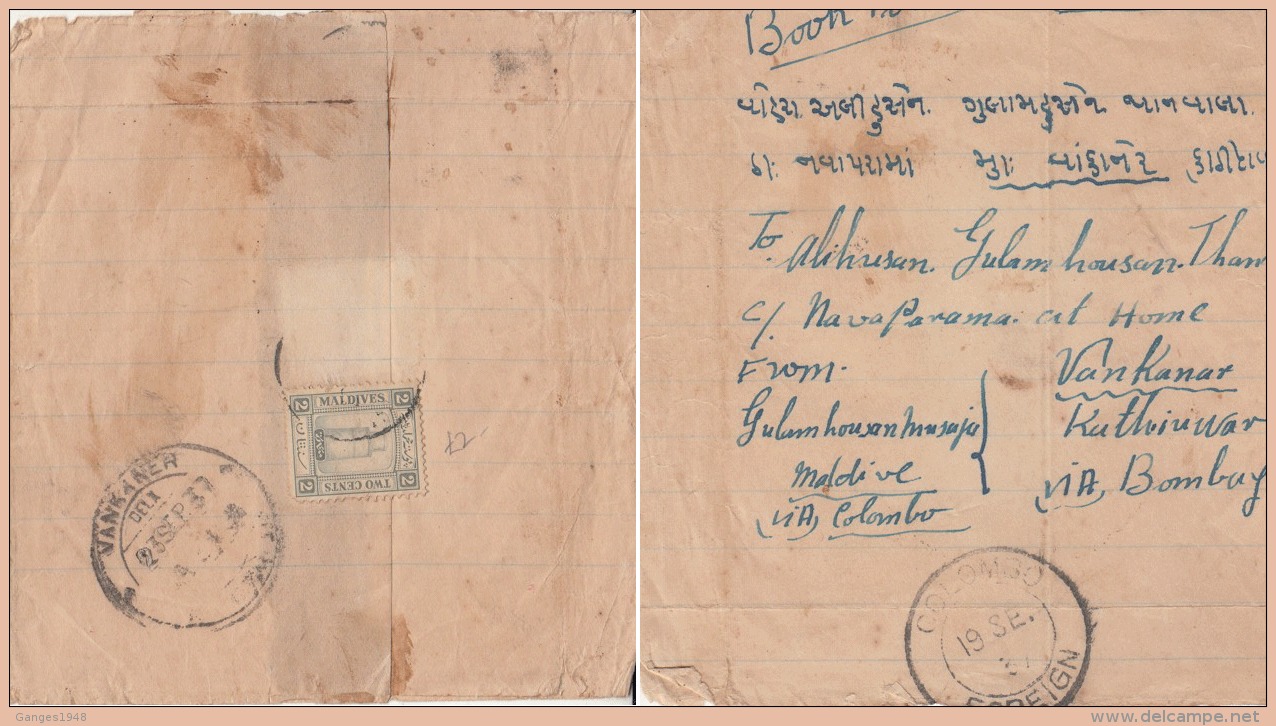 MALDIVES
2 2
2 2
TWO CENTS
VANKANER
DELY.
23 SEP. 37
Book
વોહરા અલીહુસેન ગુલામહુસેન થાનવાલા
ઠા. નવાપરામાં મુ. વાંકાનેર
To. Alihusan. Gulamhousan. Than
C/. NavaParama. at Home
From. Vankanar
Gulamhousanmusaji Kuthiuwar
Maldive VIA, Bombay
VIA, Colombo
COLOMBO
19 SE.
37
FOREIGN
Ganges1948
www.delcampe.net